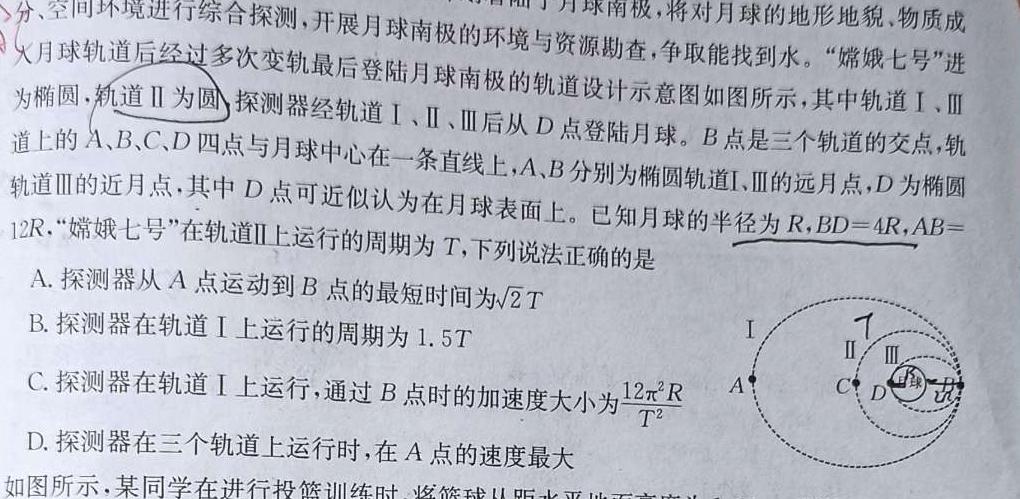 分、空间环境进行综合探测,开展月球南极的环境与资源勘查,争取能找到水。“嫦娥七号”进
月球南极,将对月球的地形地貌、物质成
月球轨道后经过多次变轨最后登陆月球南极的轨道设计示意图如图所示,其中轨道Ⅰ、Ⅲ
为椭圆,轨道Ⅱ为圆,探测器经轨道Ⅰ、Ⅱ、Ⅲ后从D点登陆月球。B点是三个轨道的交点,轨
道上的A、B、C、D四点与月球中心在一条直线上,A、B分别为椭圆轨道Ⅰ、Ⅲ的远月点,D为椭圆
轨道Ⅲ的近月点,其中D点可近似认为在月球表面上。已知月球的半径为R,BD=4R,AB=
12R,“嫦娥七号”在轨道Ⅱ上运行的周期为T,下列说法正确的是
A. 探测器从A点运动到B点的最短时间为√2T
B. 探测器在轨道Ⅰ上运行的周期为1.5T
C. 探测器在轨道Ⅰ上运行,通过B点时的加速度大小为12π²R/T²
D. 探测器在三个轨道上运行时,在A点的速度最大
Ⅰ
Ⅱ
Ⅲ
A
C
D
球
如图所示,某同学在进行投篮训练时,将篮球从距水平地面高度为